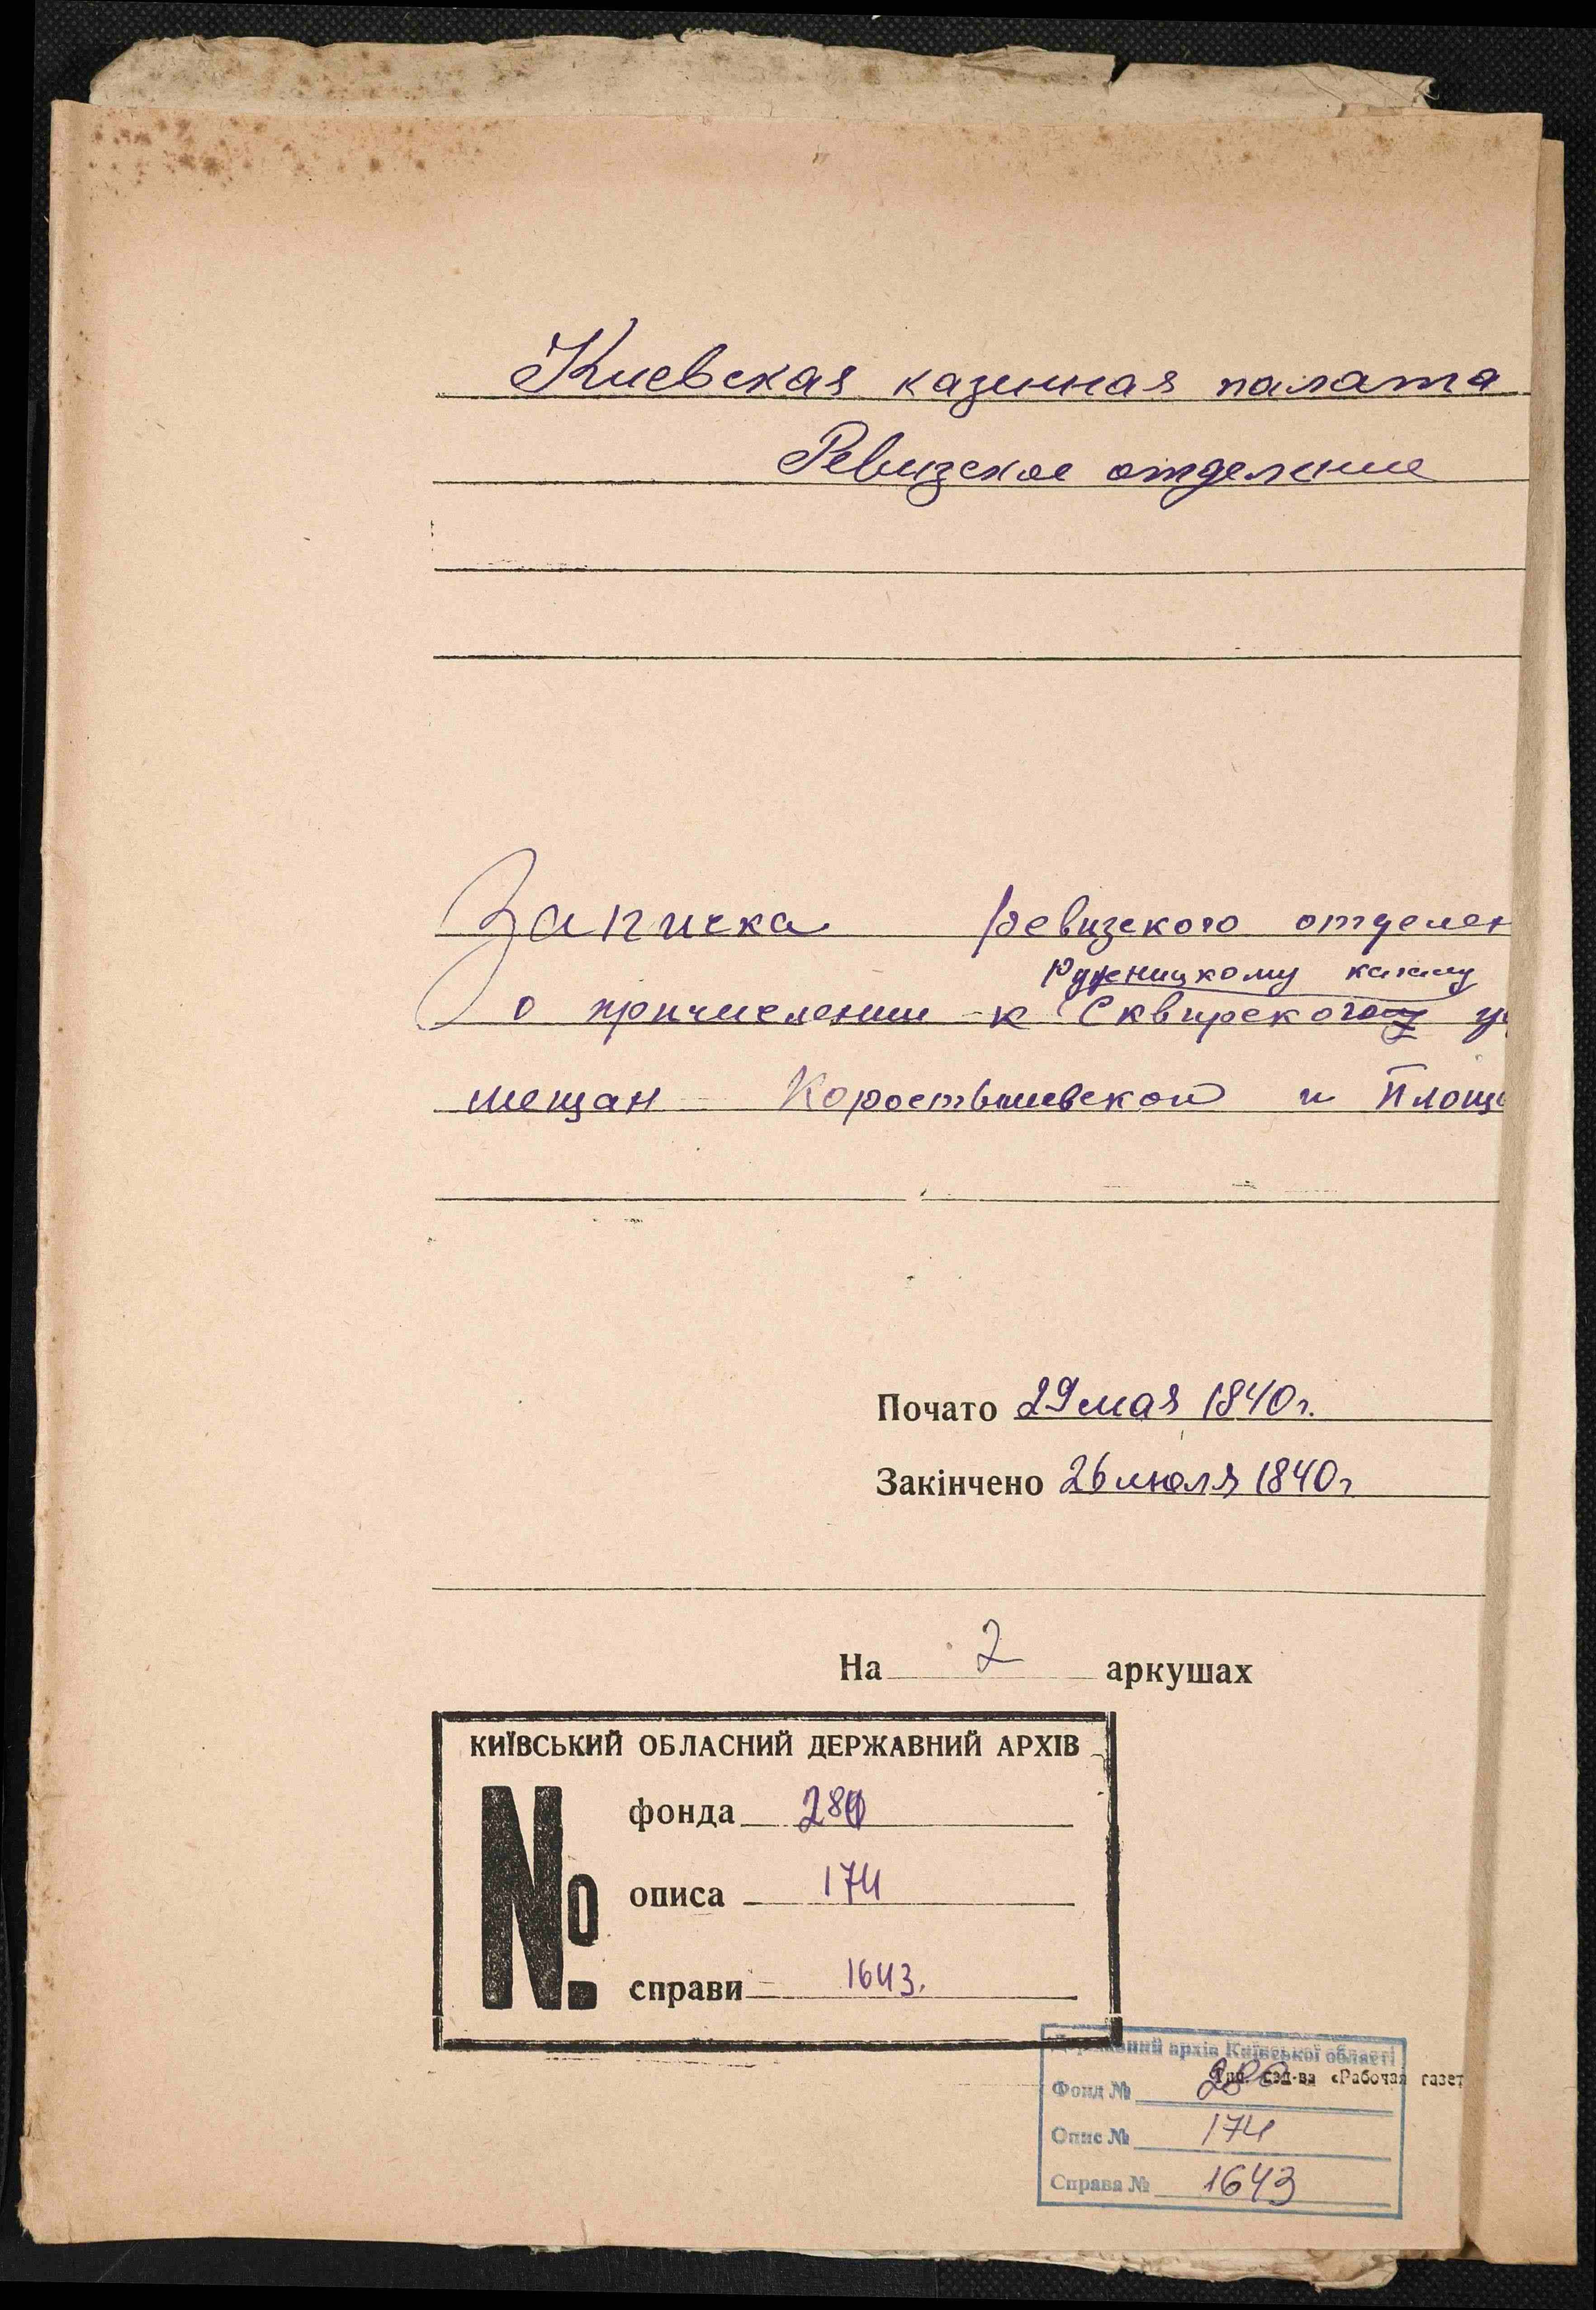 Киевская казенная палата
Ревизское отделение
Записка ревизского отделен
Ружницкому кагалу
о причислении к Сквирского у
мещан Коростышевской и Площ
Почато 29 мая 1840 г.
Закінчено 26 июля 1840 г
На 2 аркушах
КИЇВСЬКИЙ ОБЛАСНИЙ ДЕРЖАВНИЙ АРХІВ
№
фонда 280
описа 174
справи 1643.
Державний архів Київської області
Тип. изд-ва «Рабочая газет
Фонд № 280
Опис № 174
Справа № 1643